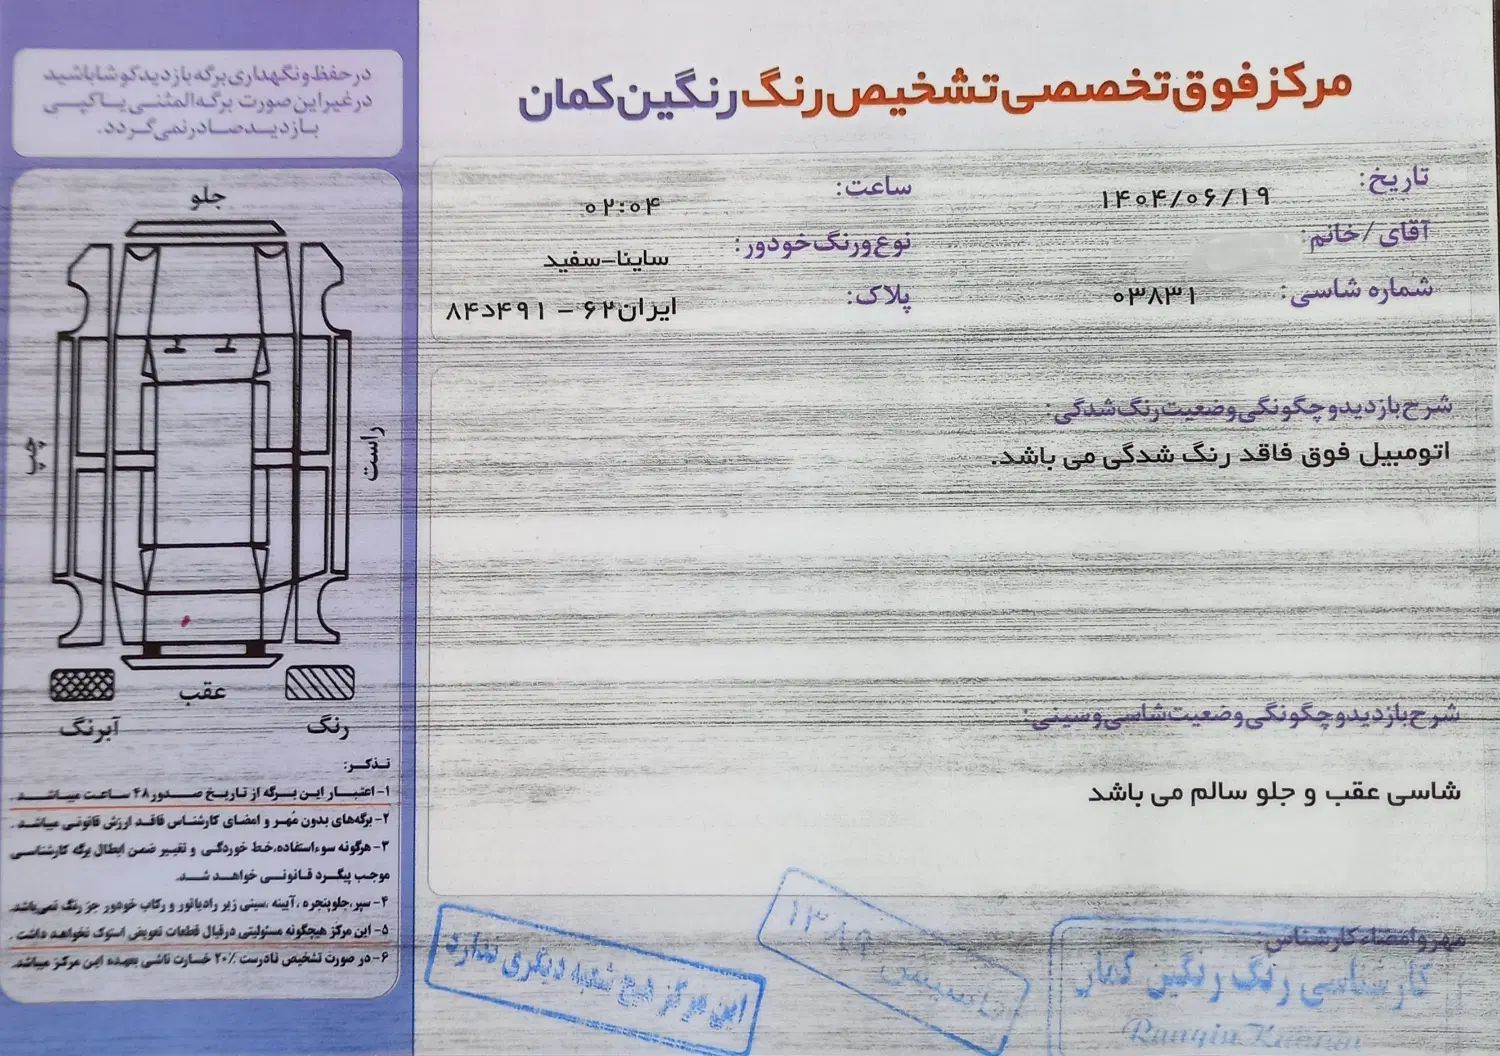 مرکز فوق تخصصی تشخیص رنگ رنگین کمان
تاریخ: ۱۴۰۴/۰۶/۱۹
ساعت: ۰۲:۰۴
آقای / خانم:
نوع و رنگ خودور: ساینا-سفید
شماره شاسی: ۰۳۸۳۱
پلاک: ایران۶۲ - ۴۹۱د۸۴
شرح بازدید و چگونگی وضعیت رنگ شدگی:
اتومبیل فوق فاقد رنگ شدگی می باشد.
شرح بازدید و چگونگی وضعیت شاسی و سینی:
شاسی عقب و جلو سالم می باشد
مهر و امضاء کارشناس:
کارشناسی رنگ رنگین کمان
Rangin Kaman
تاسیس ۱۳۸۹
این مرکز هیچ شعبه دیگری ندارد
در حفظ و نگهداری برگه بازدید کوشا باشید
در غیر این صورت برگه المثنی یا کپی
بازدید صادر نمی گردد.
جلو
چپ
راست
عقب
رنگ
آبرنگ
تذکر:
۱- اعتبار این برگه از تاریخ صدور ۴۸ ساعت میباشد.
۲- برگه‌های بدون مُهر و امضای کارشناس فاقد ارزش قانونی میباشد.
۳- هرگونه سوءاستفاده،خط خوردگی و تغییر ضمن ابطال برگه کارشناسی
موجب پیگرد قانونی خواهد شد.
۴- سپر،جلوپنجره،آیینه،سینی زیر رادیاتور و رکاب خودور جز رنگ نمی‌باشد.
۵- این مرکز هیچگونه مسئولیتی درقبال قطعات تعویض استوک نخواهد داشت.
۶- در صورت تشخیص نادرست ۲۰٪ خسارت ناشی بعهده این مرکز میباشد.